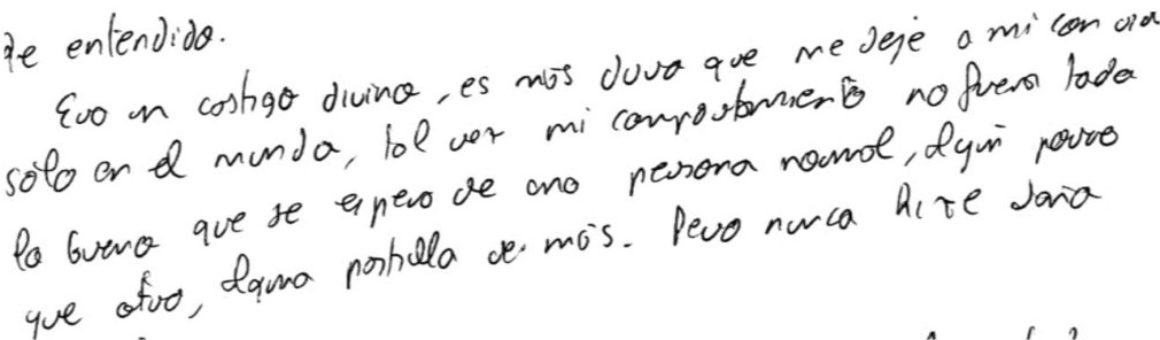 he entendido.
Era un castigo divino, es más duro que me deje a mi
sólo en el mundo, tal vez mi comportamiento no fuera todo
lo bueno que se espera de una persona normal, algún porro
que otro, alguna pastilla de más. Pero nunca hice daño